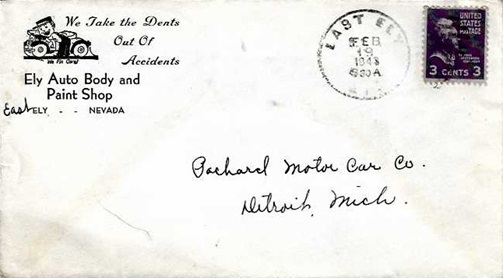 We Take the Dents
Out Of
Accidents
We Fix Cars!
Ely Auto Body and
Paint Shop
East ELY - - NEVADA
EAST ELY
FEB
19
1948
830A
UNITED
STATES
POSTAGE
3 CENTS 3
Packard Motor Car Co.
Detroit, Mich.